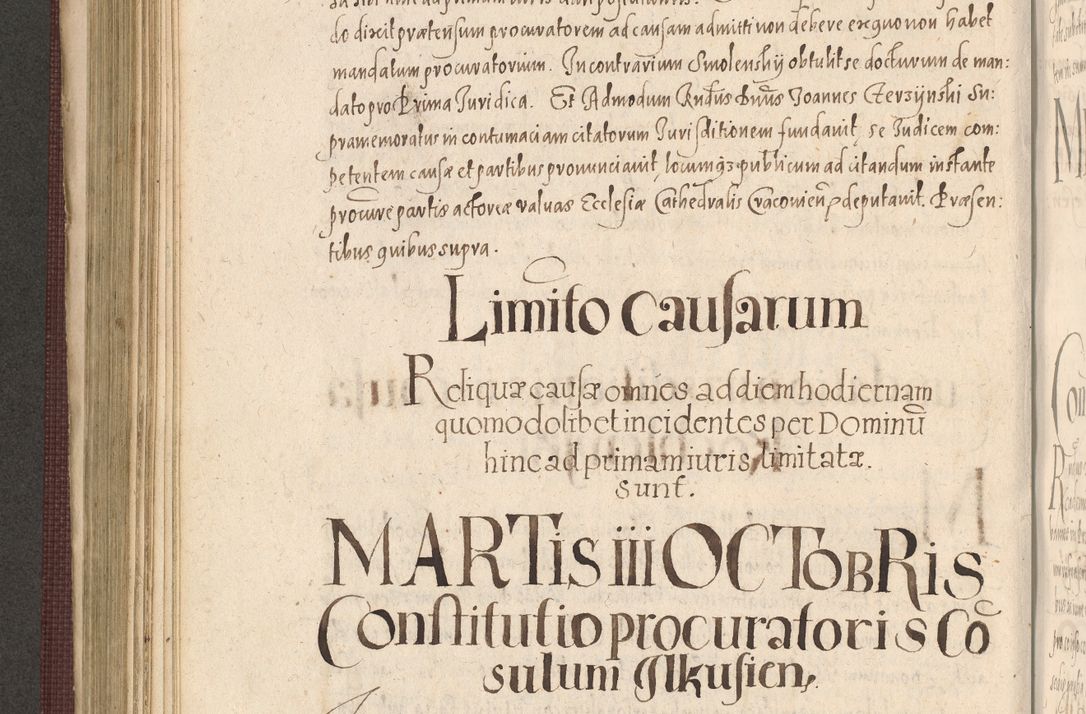 do dixit prætensum procuratorem ad causam admitti non debere ex quo non habet
mandatum procuratorium. In contrarium Smolenshÿ obtulit se docturum de man:
dato pro Prima Juridica. Et Admodum Rndus Dnus Joannes Cerzÿnshi Su:
pramemoratus in contumaciam citatorum Jurisditionem fundavit, se Judicem com:
petentem causæ et partibus pronunciavit, locumq3 publicum ad citandum instante
procure partis actoreæ valuas Ecclesiæ Cathedralis Cracovien deputavit. Præsen:
tibus quibus supra.
Limito Causarum
Reliquæ causæ omnes ad diem hodiernam
quomodolibet incidentes per Dominū
hinc ad primam iuris limitatæ.
sunt.
MARTis iii OCTobRis
Constitutio procuratoris Cō
sulum Ilkusien.